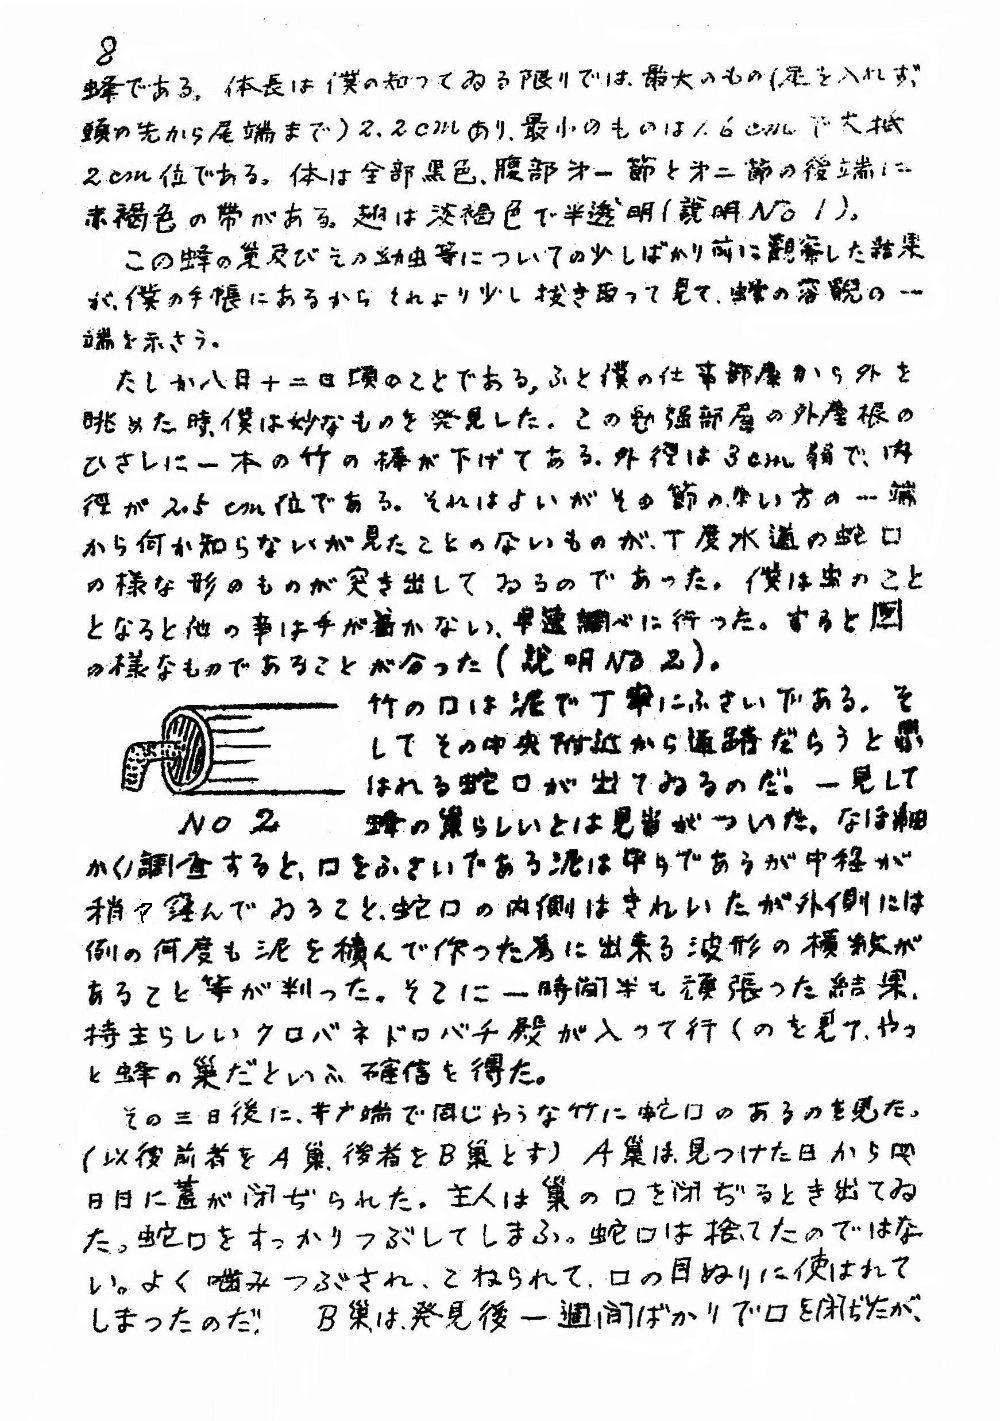 8
蜂である。体長は僕の知つてゐる限りでは、最大のもの(足を入れず、
頭の先から尾端まで)2.2cmあり、最小のものは1.6cmで大抵
2cm位である。体は全部黒色、腹部才一節と才二節の後端に
赤褐色の帯がある。翅は淡褐色で半透明(説明NO1)。
この蜂の巣及びその幼虫等についての少しばかり前に観察した結果
が、僕の手帳にあるからそれより少し抜き取って見て、蜂の容貌の一
端を示さう。
たしか八月十二日頃のことである,ふと僕の仕事部屋から外を
眺めた時、僕は妙なものを発見した。この勉強部屋の外屋根の
ひさしに一本の竹の棒が下げてある。外径は3cm弱で、内
径が2.5cm位である。それはよいがその節の無い方の一端
から何か知らないが見たことのないものが、丁度水道の蛇口
の様な形のものが突き出してゐるのであった。僕は虫のこと
となると他の事は手が着かない、早速調べに行った。すると図
の様なものであることが分った(説明NO2)。
竹の口は泥で丁寧にふさいである。そ
してその中央附近から通路だらうと思
はれる蛇口が出てゐるのだ。一見して
NO2
蜂の巣らしいとは見当がついた。なほ細
かく調査すると、口をふさいである泥は平らであるが中程が
稍々窪んでゐること、蛇口の内側はきれいだが外側には
例の何度も泥を積んで作った為に出来る波形の横紋が
あること等が判った。そこに一時間半も頑張った結果、
持主らしいクロバネドロバチ殿が入って行くのを見て、やっ
と蜂の巣だといふ確信を得た。
その三日後に、井戸端で同じやうな竹に蛇口のあるのを見た。
(以後前者をA巣、後者をB巣とす) A巣は、見つけた日から四
日目に蓋が閉ぢられた。主人は巣の口を閉ぢるとき出てゐ
た。蛇口をすっかりつぶしてしまふ。蛇口は捨てたのではな
い。よく噛みつぶされ、こねられて、口の目ぬりに使はれて
しまったのだ。 B巣は、発見後一週間ばかりで口を閉ぢたが、